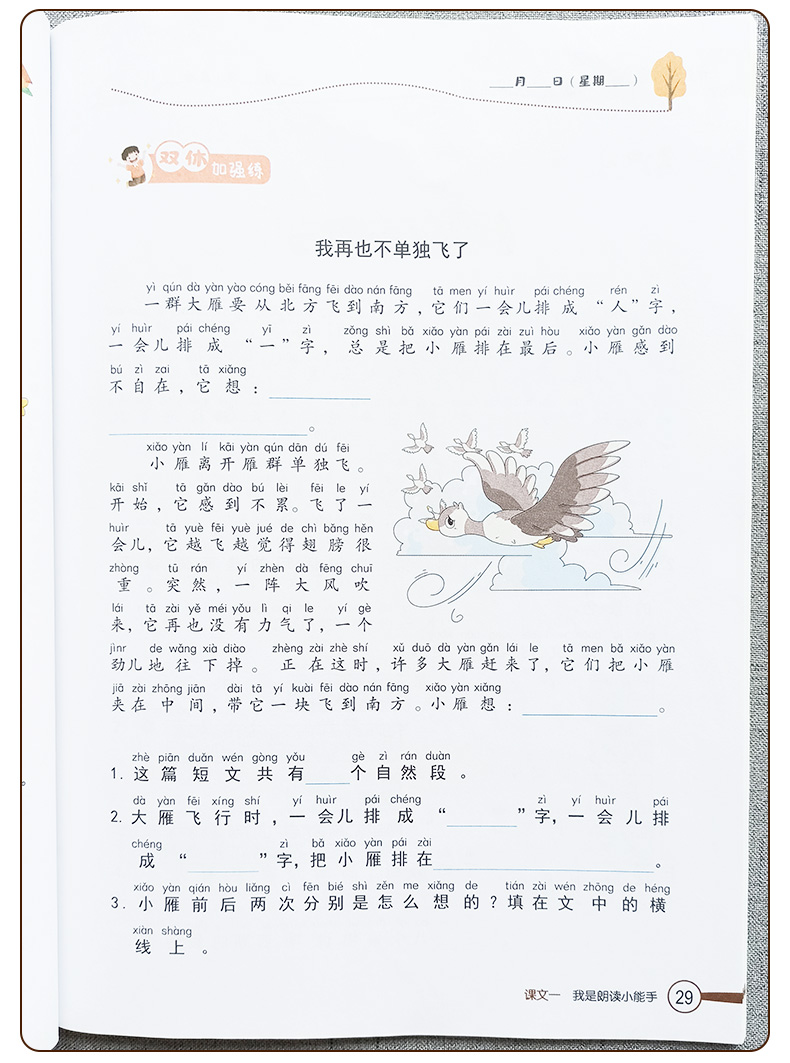 ___月___日（星期___）
双休加强练
我再也不单独飞了
yì qún dà yàn yào cóng běi fāng fēi dào nán fāng tā men yí huìr pái chéng rén zì
一群大雁要从北方飞到南方，它们一会儿排成“人”字，
yí huìr pái chéng yī zì zǒng shì bǎ xiǎo yàn pái zài zuì hòu xiǎo yàn gǎn dào
一会儿排成“一”字，总是把小雁排在最后。小雁感到
bú zì zai tā xiǎng
不自在，它想：___________
______________________。
xiǎo yàn lí kāi yàn qún dān dú fēi
小雁离开雁群单独飞。
kāi shǐ tā gǎn dào bú lèi fēi le yí
开始，它感到不累。飞了一
huìr tā yuè fēi yuè jué de chì bǎng hěn
会儿，它越飞越觉得翅膀很
zhòng tū rán yí zhèn dà fēng chuī
重。突然，一阵大风吹
lái tā zài yě méi yǒu lì qi le yí gè
来，它再也没有力气了，一个
jìnr de wǎng xià diào zhèng zài zhè shí xǔ duō dà yàn gǎn lái le tā men bǎ xiǎo yàn
劲儿地往下掉。正在这时，许多大雁赶来了，它们把小雁
jiā zài zhōng jiān dài tā yí kuài fēi dào nán fāng xiǎo yàn xiǎng
夹在中间，带它一块飞到南方。小雁想：______________。
zhè piān duǎn wén gòng yǒu gè zì rán duàn
1. 这篇短文共有____个自然段。
dà yàn fēi xíng shí yí huìr pái chéng zì yí huìr pái
2. 大雁飞行时，一会儿排成“_______”字，一会儿排
chéng zì bǎ xiǎo yàn pái zài
成“_______”字，把小雁排在______________________。
xiǎo yàn qián hòu liǎng cì fēn bié shì zěn me xiǎng de tián zài wén zhōng de héng
3. 小雁前后两次分别是怎么想的？填在文中的横
xiàn shàng
线上。
课文一 我是朗读小能手 29